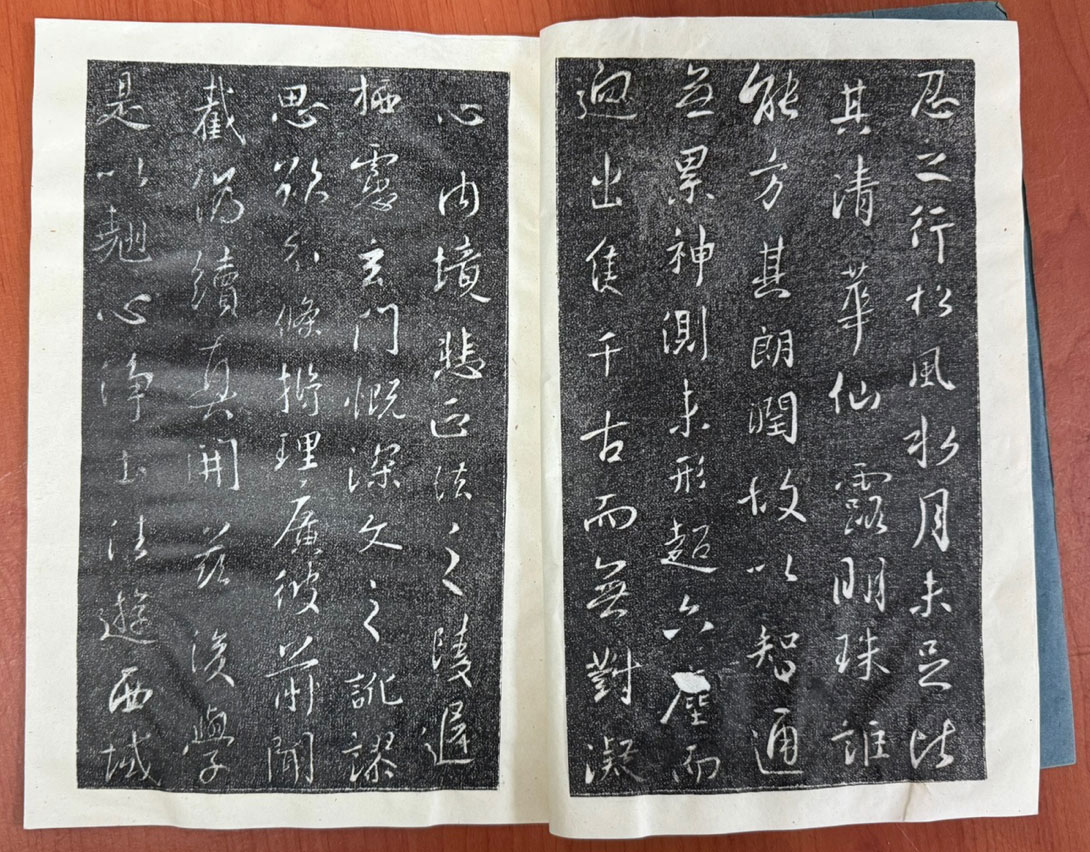 忍之行松風水月未足比
其清華仙露明珠詎
能方其朗潤故以智通
无累神測未形超六塵而
迥出隻千古而無對凝
心內境悲正法之陵遲
栖慮玄門慨深文之訛謬
思欲分條析理廣彼前聞
截偽續真開茲後學
是以翹心淨土法遊西域